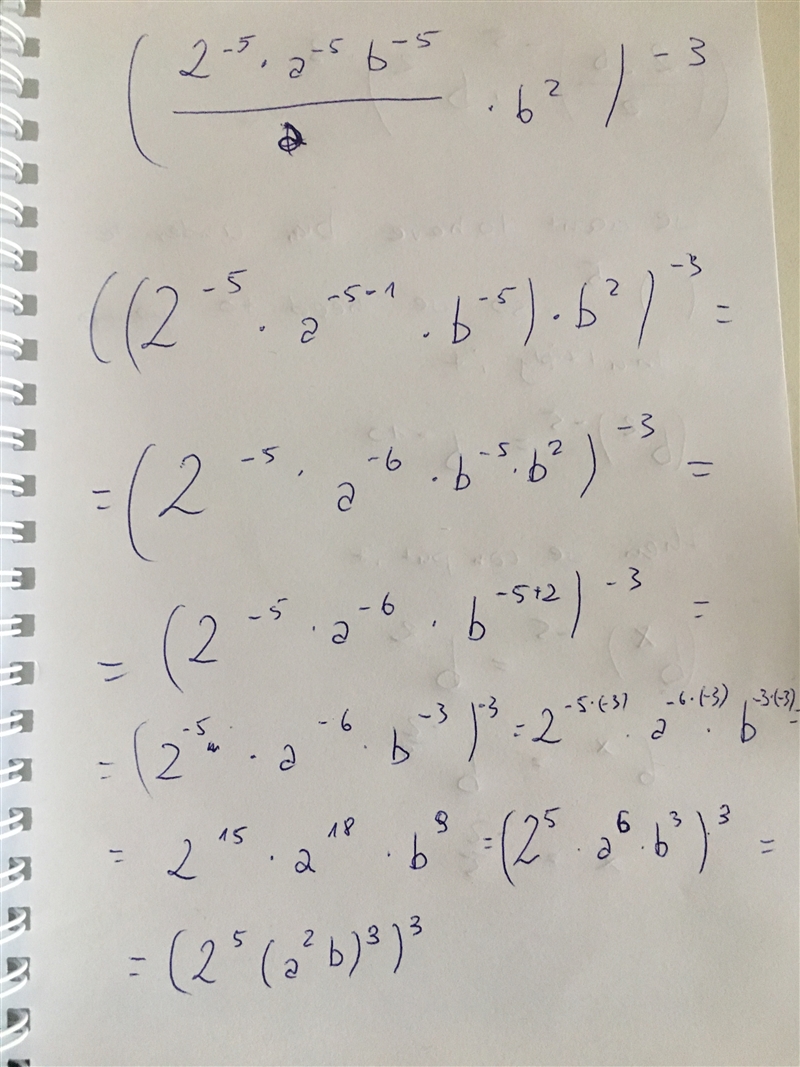 (2⁻⁵ · a⁻⁵ b⁻⁵ / a · b²)⁻³
((2⁻⁵ · a⁻⁵⁻¹ · b⁻⁵) · b²)⁻³ =
= (2⁻⁵ · a⁻⁶ · b⁻⁵ · b²)⁻³ =
= (2⁻⁵ · a⁻⁶ · b⁻⁵⁺²)⁻³ =
= (2⁻⁵ · a⁻⁶ · b⁻³)⁻³ = 2⁻⁵·⁽⁻³⁾ · a⁻⁶·⁽⁻³⁾ · b⁻³·⁽⁻³⁾ =
= 2¹⁵ · a¹⁸ · b⁹ = (2⁵ · a⁶ · b³)³ =
= (2⁵ (a² b)³)³